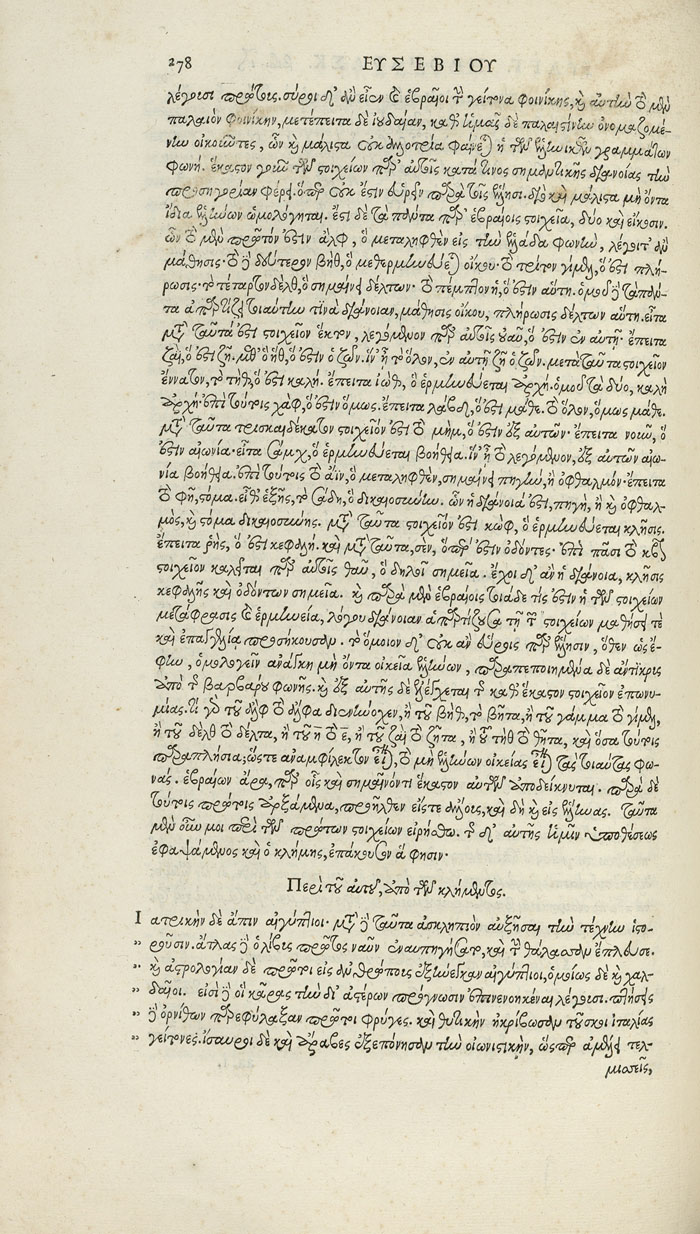 278 ΕΥΣΕΒΙΟΥ
λέγουσι πρῶτοις. σύροι δ' ἂν εἶεν καὶ ἑβραῖοι τὴν γείτονα φοινίκης, καὶ αὐτὴν τὸ μὲν
παλαιὸν φοινίκην, μετέπειτα δὲ ἰουδαίαν, καθ' ἡμᾶς δὲ παλαιστίνην ὀνομαζομέ-
νην οἰκοῦντες, ὧν καὶ μάλιστα οὐκ ἀλλοτρία φαίνεται ἡ τῶν ἑλληνικῶν γραμμάτων
φωνή. ἕκαστον γοῦν τῶν στοιχείων παρ' αὐτοῖς κατά τινος σημαντικῆς διανοίας τὴν
προσηγορίαν φέρει. ὅπερ οὐκ ἔστιν εὑρεῖν παρὰ τοῖς ἕλλησι. διὸ καὶ μάλιστα μὴ ὄντα
ἴδια ἑλλήνων ὡμολόγηται. ἔστι δὲ τὰ πάντα παρ' ἑβραίοις στοιχεῖα, δύο καὶ εἴκοσιν.
ὧν τὸ μὲν πρῶτόν ἐστιν ἄλφ, ὃ μεταληφθὲν εἰς τὴν ἑλλάδα φωνὴν, λέγοιτ' ἂν
μάθησις. τὸ δὲ δεύτερον βὴθ, ὃ μεθερμηνεύεται οἴκου. τὸ τρίτον γίμελ, ὅ ἐστι πλή-
ρωσις. τὸ τέταρτον δὲλθ, ὃ σημαίνει δέλτων. τὸ πέμπτον ἡ, ὅ ἐστιν αὕτη. ὁμοῦ δὲ τὰ πάν-
τα ἀπαρτίζει τοιαύτην τινὰ διάνοιαν, μάθησις οἴκου, πλήρωσις δέλτων αὕτη. εἶτα
μετὰ ταῦτά ἐστι στοιχεῖον ἕκτον, λεγόμενον παρ' αὐτοῖς οὐαῦ, ὅ ἐστιν ἐν αὐτῇ. ἔπειτα
ζαῒ, ὅ ἐστι ζῇ. μεθ' ὃ ἢθ, ὅ ἐστιν ὁ ζῶν. ἵν' ᾖ τὸ ὅλον, ἐν αὐτῇ ζῇ ὁ ζῶν. μετὰ ταῦτα στοιχεῖον
ἔννατον, τὸ τὴθ, ὅ ἐστι καλή. ἔπειτα ἰώθ, ὃ ἑρμηνεύεται ἀρχή. ὁμοῦ τὰ δύο, καλὴ
ἀρχή. ἐπὶ τούτοις χὰφ, ὅ ἐστιν ὅμως. ἔπειτα λάβδ, ὅ ἐστι μάθε. τὸ ὅλον, ὅμως μάθε.
μετὰ ταῦτα τρισκαιδέκατον στοιχεῖόν ἐστι τὸ μὴμ, ὅ ἐστιν ἐξ αὐτῶν. ἔπειτα νοῦν, ὅ
ἐστιν αἰωνία. εἶτα σάμχ, ὃ ἑρμηνεύεται βοήθεια. ἵν' ᾖ τὸ λεγόμενον, ἐξ αὐτῶν αἰω-
νία βοήθεια. ἐπὶ τούτοις τὸ ἄϊν, ὃ μεταληφθὲν, σημαίνει πηγὴν, ἢ ὀφθαλμόν. ἔπειτα
τὸ φῆ, στόμα. εἶθ' ἑξῆς, τὸ σάδη, ὃ δικαιοσύνη. ὧν ἡ διάνοιά ἐστι, πηγὴ, ἢ καὶ ὀφθαλ-
μὸς, καὶ στόμα δικαιοσύνης. μετὰ ταῦτα στοιχεῖόν ἐστι κὼφ, ὃ ἑρμηνεύεται κλῆσις.
ἔπειτα ῥὴς, ὅ ἐστι κεφαλή. καὶ μετὰ ταῦτα, σὲν, ὅπερ ἐστὶν ὀδόντες. ἐπὶ πᾶσι τὸ κβ
στοιχεῖον καλεῖται παρ' αὐτοῖς θαῦ, ὃ δηλοῖ σημεῖα. ἔχοι δ' ἂν ἡ διάνοια, κλῆσις
κεφαλῆς καὶ ὀδόντων σημεῖα. καὶ παρὰ μὲν ἑβραίοις τοιάδε τίς ἐστιν ἡ τῶν στοιχείων
μετάφρασις καὶ ἑρμηνεία, λόγου διάνοιαν ἀπαρτίζουσα τῇ τῶν στοιχείων μαθήσει τε
καὶ ἐπαγγελίᾳ προσήκουσαν. τὸ ὅμοιον δ' οὐκ ἂν εὕροις παρ' ἕλλησιν, ὅθεν ὡς ἔ-
φην, ὁμολογεῖν ἀνάγκη μὴ ὄντα οἰκεῖα ἑλλήνων, παραπεποιημένα δὲ ἄντικρις
ἀπὸ τῆς βαρβάρου φωνῆς. καὶ ἐξ αὐτῆς δὲ ἐλέγχεται τῆς καθ' ἕκαστον στοιχεῖον ἐπωνυ-
μίας. τί γὰρ τοῦ ἄλφ τὸ ἄλφα διενήνοχεν, ἢ τοῦ βὴθ, τὸ βῆτα, ἢ τοῦ γάμμα τὸ γίμελ,
ἢ τοῦ δὲλθ τὸ δέλτα, ἢ τοῦ ἡ τὸ ε, ἢ τοῦ ζαῒ τὸ ζῆτα, ἢ τοῦ τὴθ τὸ θῆτα, καὶ ὅσα τούτοις
παραπλήσια; ὥστε ἀναμφίλεκτον εἶναι, τὸ μὴ ἑλλήνων οἰκείας εἶναι τὰς τοιαύτας φω-
νάς. ἑβραίων ἄρα, παρ' οἷς καὶ σημαῖνόν τι ἕκαστον αὐτῶν ἀποδείκνυται. παρὰ δὲ
τούτοις πρώτοις ἀρξάμενα, προῆλθεν εἴς τε ἄλλους, καὶ δὴ καὶ εἰς ἕλληνας. ταῦτα
μὲν οὖν μοι περὶ τῶν πρώτων στοιχείων εἰρήσθω. τῆς δ' αὐτῆς ἡμῖν ὑποθέσεως
ἐφαψάμενος καὶ ὁ κλήμης, ἐπάκουσον ἅ φησιν.
Περὶ τοῦ αὐτοῦ, ἀπὸ τῶν κλήμεντος.
Ι ατρικὴν δὲ ἄπιν αἰγύπτιοι. μετὰ δὲ ταῦτα ἀσκληπιὸν αὐξῆσαι τὴν τέχνην ἱστο-
" ροῦσιν. ἄτλας δὲ ὁ λίβις πρῶτος ναῦν ἐναυπηγήσατο, καὶ τὴν θάλασσαν ἔπλευσε.
" καὶ ἀστρολογίαν δὲ πρῶτοι εἰς ἀνθρώπους ἐξήνεγκαν αἰγύπτιοι, ὁμοίως δὲ καὶ χαλ-
" δαῖοι. εἰσὶ δὲ οἳ κᾶρας τὴν δι' ἀστέρων πρόγνωσιν ἐπινενοηκέναι λέγουσι. πτήσεις
" δὲ ὀρνίθων παρεφύλαξαν πρῶτοι φρύγες. καὶ θυτικὴν ἠκρίβωσαν τοῦσκοι ἰταλίας
" γείτονες. ἴσαυροι δὲ καὶ ἄραβες ἐξεπόνησαν τὴν οἰωνιστικὴν, ὥσπερ ἀμέλει τελ-
μισεῖς,